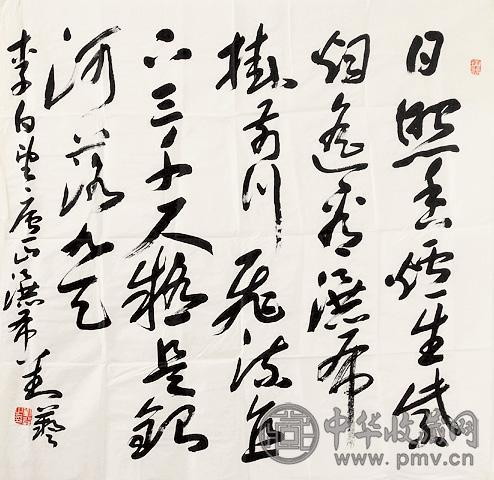 日照香炉生紫
烟遥看瀑布
掛前川飛流直
下三千尺疑是銀
河落九天
李白望庐山瀑布
中华收藏网
www.pmv.cn